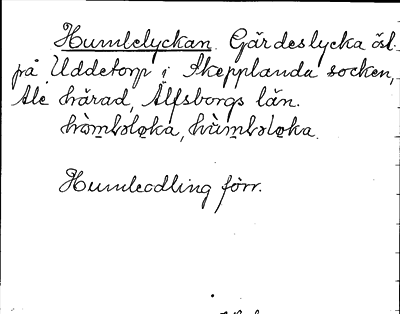 Humlelyckan. Gärdeslycka öst.
på Uddetorp i Skepplanda socken,
Ale härad, Älfsborgs län.
Humleodling förr.